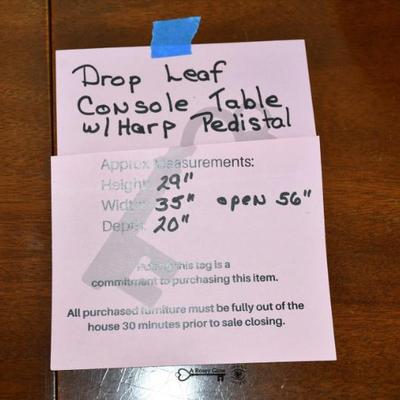 Drop Leaf
Console Table
w/ Harp Pedistal
Approx Measurements:
Height: 29"
Width: 35" open 56"
Depth: 20"
Pulling this tag is a
commitment to purchasing this item.
All purchased furniture must be fully out of the
house 30 minutes prior to sale closing.